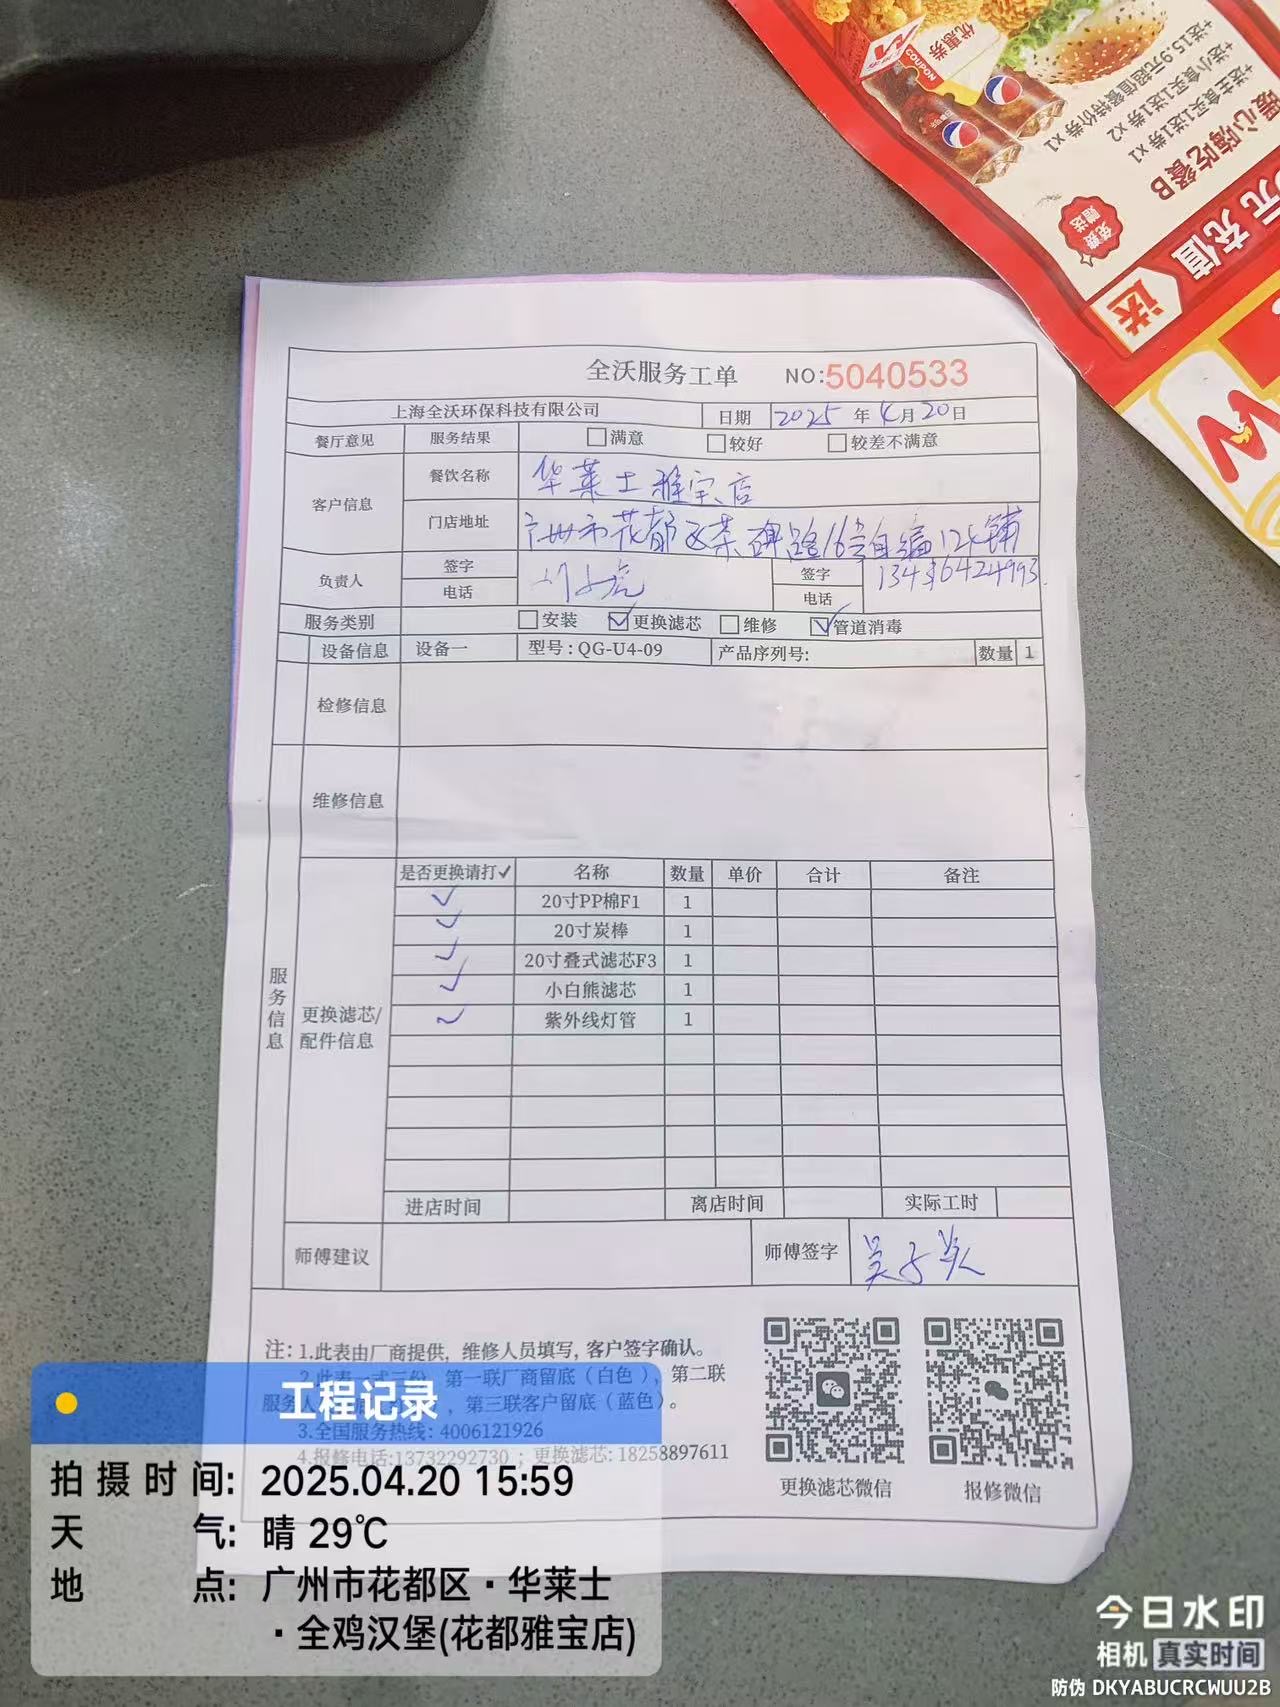 优惠券
COUPON
+送15.9元超值餐特价券 x1
+送小食买1送1券 x2
+送主食买1送1券 x1
暖心嗨吃餐B
免费赠送
元充值
送
全沃服务工单 NO:5040533
上海全沃环保科技有限公司 日期 2025 年 4月 20日
餐厅意见 服务结果 满意 较好 较差不满意
客户信息 餐饮名称 华莱士雅宝店
门店地址 广州市花都区茶碑路16号自编124铺
负责人 签字 签字
电话 电话
服务类别 安装 更换滤芯 维修 管道消毒
设备信息 设备一 型号:QG-U4-09 产品序列号: 数量 1
检修信息
维修信息
服务信息
更换滤芯/配件信息
是否更换请打✓ 名称 数量 单价 合计 备注
✓ 20寸PP棉F1 1
✓ 20寸炭棒 1
✓ 20寸叠式滤芯F3 1
✓ 小白熊滤芯 1
✓ 紫外线灯管 1
进店时间 离店时间 实际工时
师傅建议 师傅签字
注:1.此表由厂商提供，维修人员填写，客户签字确认。
2.此表一式三份，第一联厂商留底（白色），第二联
服务，第三联客户留底（蓝色）。
3.全国服务热线:4006121926
4.报修电话:13732292730；更换滤芯:18258897611
更换滤芯微信 报修微信
工程记录
拍摄时间: 2025.04.20 15:59
天气: 晴 29℃
地点: 广州市花都区·华莱士
·全鸡汉堡(花都雅宝店)
今日水印
相机 真实时间
防伪 DKYABUCRCWUU2B